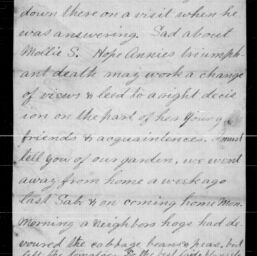 down there on a visit when he
was answering. Sad about
Mollie S. Hope Annies triumph
ant death may work a change
of views & lead to a right decis
ion on the part of her young
friends & acquaintences. I must
tell you of our garden, we went
away from home a week ago
last Sab. & on coming home Mon.
Morning a neighbors hogs had de-
voured the cabbage beans & peas, but
left the tomatoes.